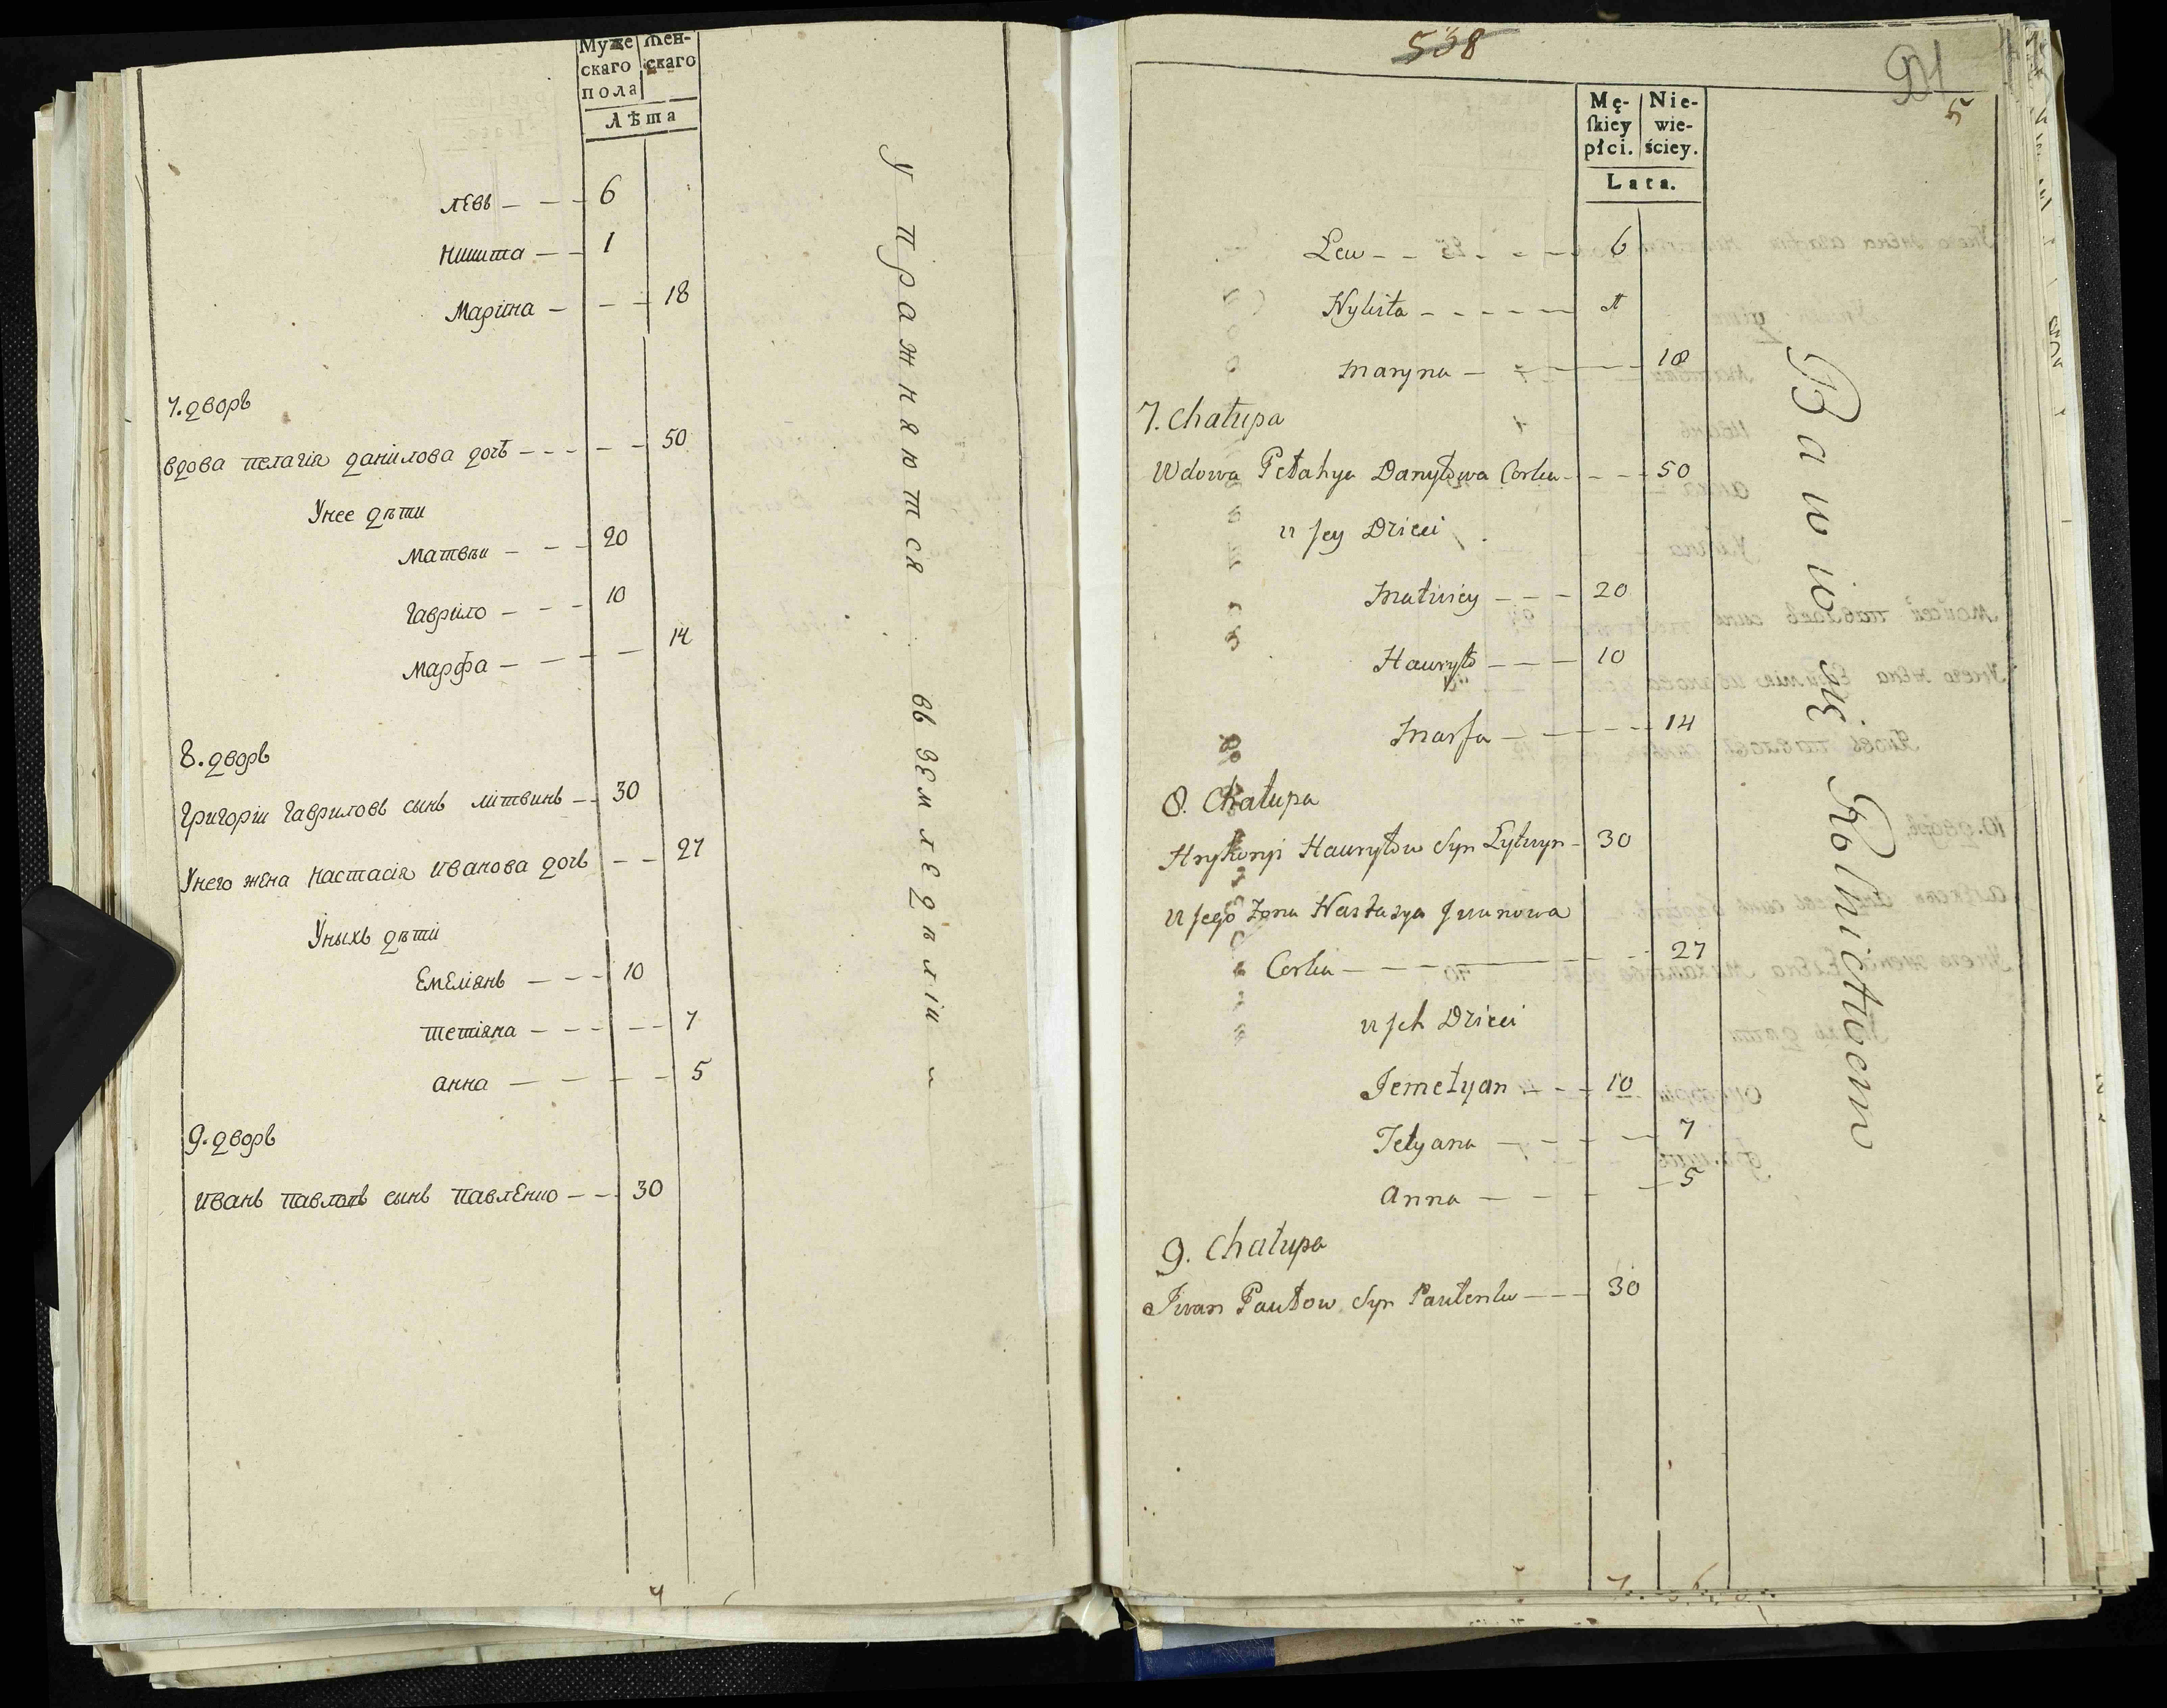 Муже скаго пола
Жен- скаго
Лѣта
левъ — — — 6
Никита — — 1
Марина — — — 18
7. дворъ
вдова пелагія данилова дочъ — — — — — 50
Унее дѣти
Матвѣи — — — 20
Гаврило — — — 10
Марфа — — — — — 14
8. дворъ
Григоріи Гавриловъ сынъ литвинъ — — 30
Унего жена Настасія Иванова дочъ — — 27
Уныхъ дѣти
Емеліянъ — — — 10
тетіяна — — — — — 7
анна — — — — 5
9. дворъ
Иванъ павловъ сынъ павленко — — 30
Упражняются въ земледѣліи
538
5
Mę- ſkiey płci.
Nie- wie- ściey.
Lata.
Lew — — — — — 6
Nykita — — — — — 1
Maryna — — — — — 18
7. Chałupa
Wdowa Pełahya Danyłowa Corka — — — 50
u Jey Dzieci
Matwiey — — — 20
Hawryło — — — 10
Marfa — — — — — 14
8. Chałupa
Hryhoryi Hawryłow Syn Lytwyn — 30
u Jego Zona Nastasya Jwanowa
Corka — — — — — 27
u Jch Dzieci
Jemelyan — — — 10
Tetyana — — — — 7
Anna — — — — 5
9. Chałupa
Jwan Pawłow Syn Pawlenko — — — 30
Bawio się Rolnictwem